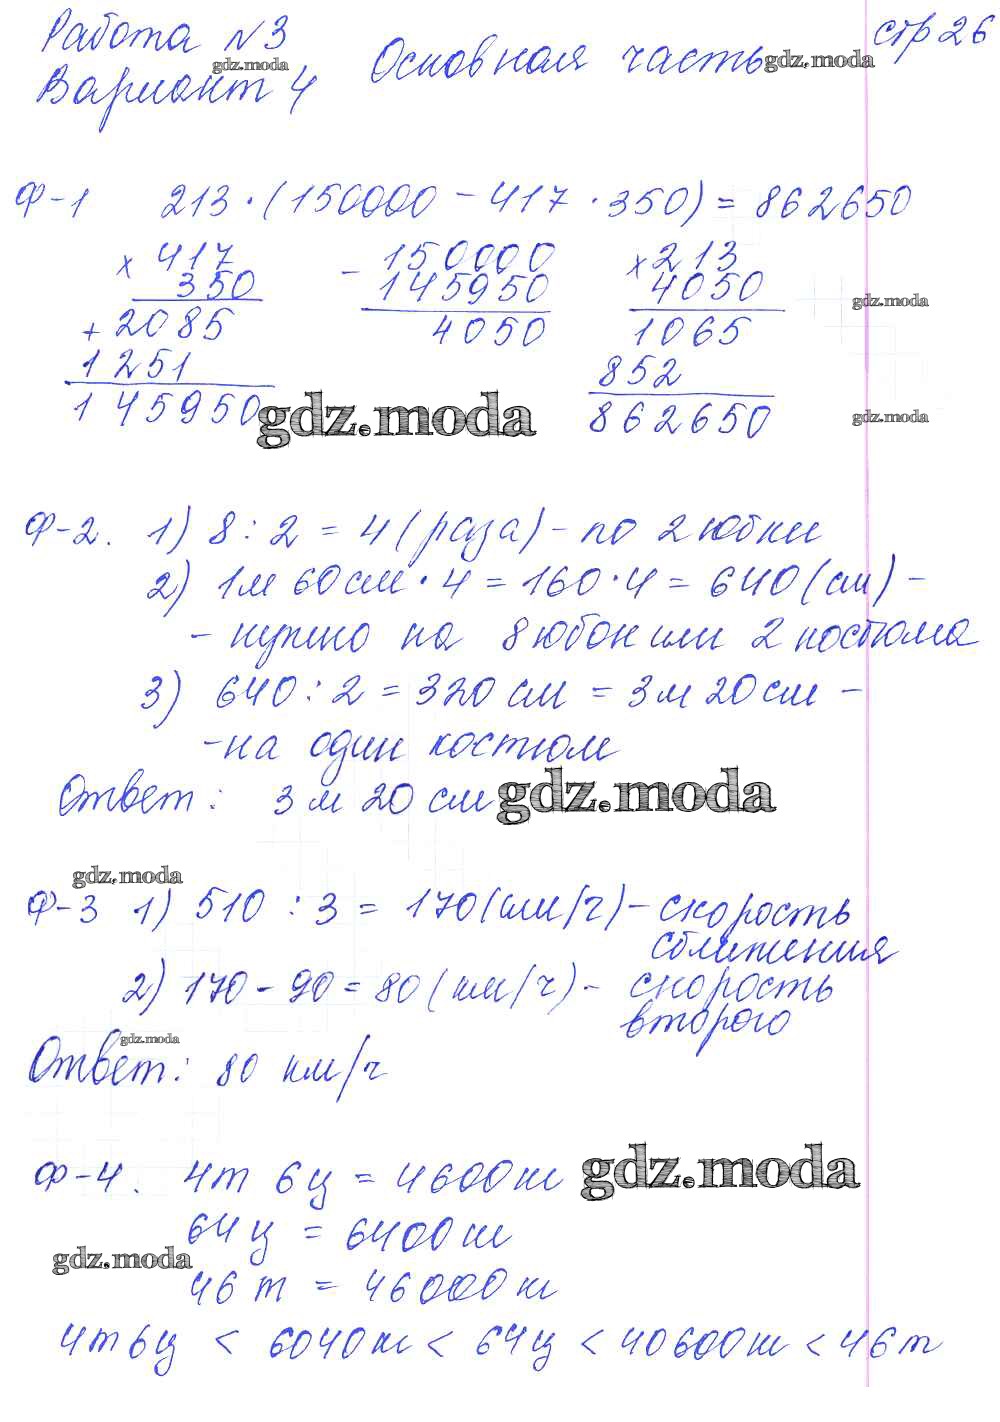 Работа №3
стр 26
Основная часть
gdz.moda
gdz.moda
Вариант 4
Ф-1 213·(150000 - 417·350) = 862650
× 417
350
+ 2085
1251
145950
- 150000
145950
4050
× 213
4050
1065
852
862650
gdz.moda
gdz.moda
gdz.moda
Ф-2. 1) 8 : 2 = 4 (раза) - по 2 юбки
2) 1м 60см · 4 = 160 · 4 = 640 (см) -
- нужно на 8 юбок или 2 костюма
3) 640 : 2 = 320 см = 3м 20см -
- на один костюм
Ответ: 3 м 20 см
gdz.moda
gdz.moda
Ф-3 1) 510 : 3 = 170 (км/ч) - скорость
сближения
2) 170 - 90 = 80 (км/ч) - скорость
второго
gdz.moda
Ответ: 80 км/ч
Ф-4. 4т 6ц = 4600кг
gdz.moda
64ц = 6400кг
gdz.moda
46т = 46000кг
4т6ц < 6040кг < 64ц < 40600кг < 46т